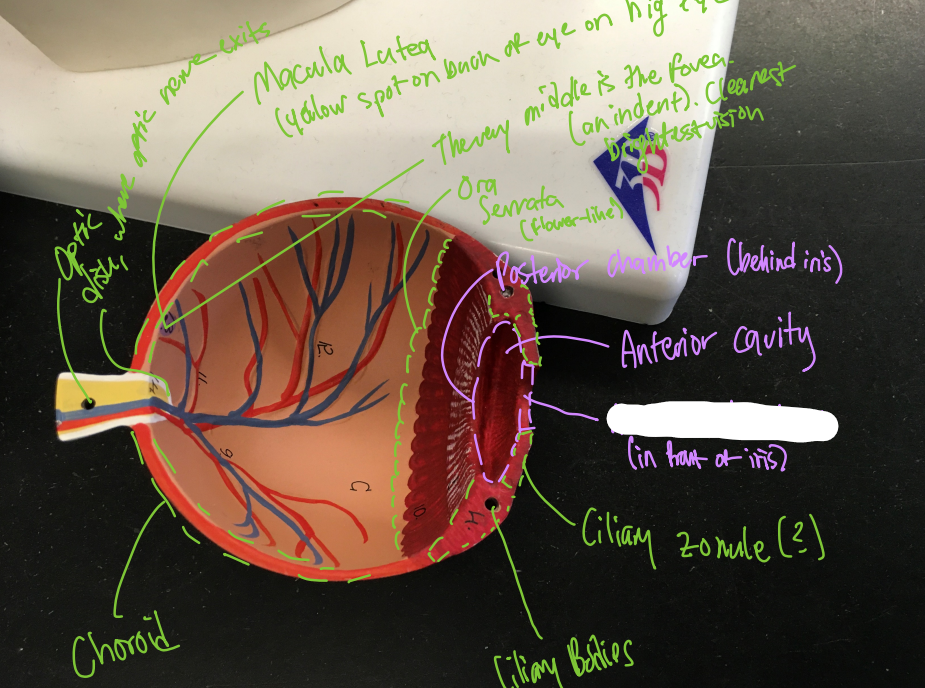 Optic
where optic nerve exits
Macula Lutea
(yellow spot on back of eye on eye
The very middle is the fovea.
(an indent). Clearest
brightest vision
3B
Ora
Serrata
(flower-like)
Posterior chamber (behind iris)
Anterior cavity
(in front of iris)
Ciliary zonule (?)
Ciliary Bodies
Choroid
12.
11.
9
10.